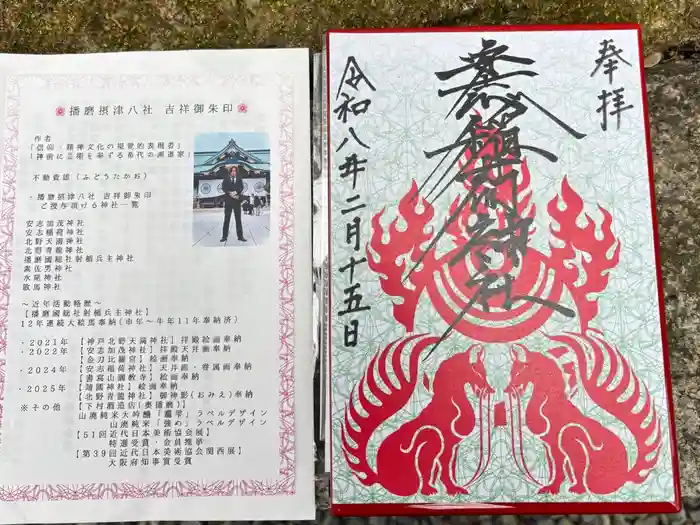 播磨摂津八社 吉祥御朱印
作者
「信仰・精神文化の視覚的表現者」
「神前に芸術を奉ずる希代の画道家」
不動貴雄(ふどうたかお)
・播磨摂津八社 吉祥御朱印
ご授与頂ける神社一覧
安志加茂神社
安志稲荷神社
北野天満神社
北野青龍神社
播磨國総社射楯兵主神社
素佐男神社
水尾神社
敬馬神社
~近年活動略歴~
【播磨國総社射楯兵主神社】
12年連続大絵馬奉納(市年~牛年11年奉納済)
・2021年 【神戸北野天満神社】拝殿絵画奉納
・2022年 【安志加茂神社】拝殿天井画奉納
【金刀比羅宮】絵画奉納
・2024年 【安志稲荷神社】天井画・脊属画奉納
【書寫山圓教寺】絵画奉納
・2025年 【靖國神社】絵画奉納
【北野青龍神社】御神影(おみえ)奉納
※その他 【下村酒造店(奥播磨)】
山廃純米大吟醸「龗雫」ラベルデザイン
山廃純米「強め」ラベルデザイン
【51回近代日本美術協会展】
特選受賞・会員推挙
【第39回近代日本美術協会関西展】
大阪府知事賞受賞
奉拝
安志稲荷神社
令和八年二月十五日